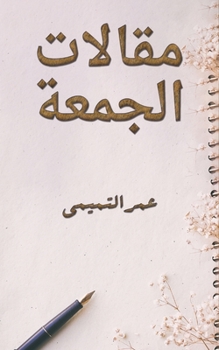 مقالات
الجمعة
عمر التميمي